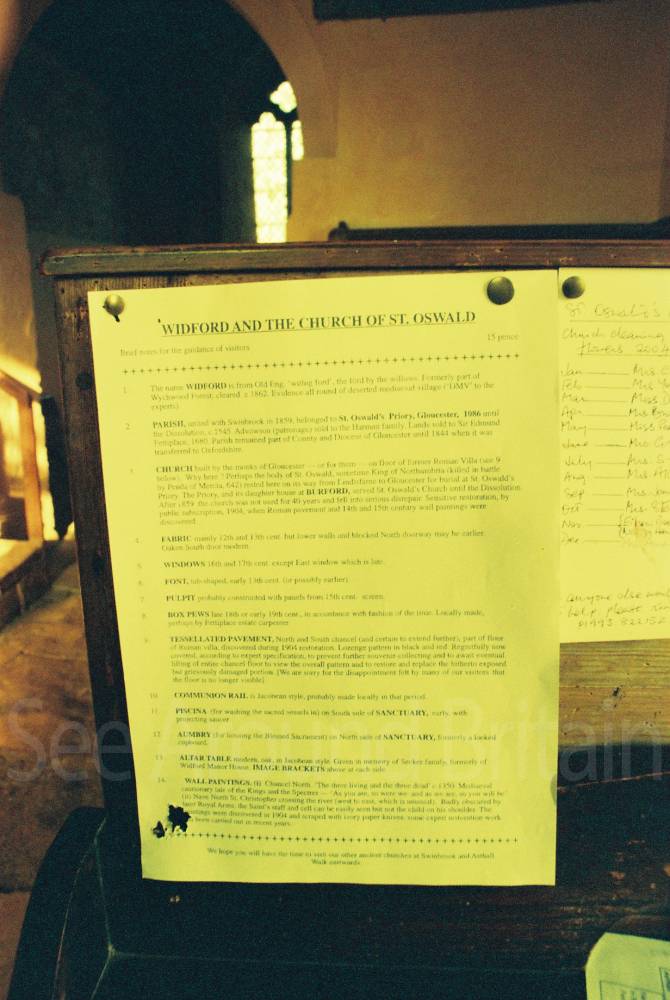 WIDFORD AND THE CHURCH OF ST. OSWALD
15 pence
Brief notes for the guidance of visitors
1. The name WIDFORD is from Old Eng. 'withig ford', the ford by the willows. Formerly part of
Wychwood Forest, cleared c 1862. Evidence all round of deserted mediaeval village ("DMV" to the
experts).
2. PARISH, united with Swinbrook in 1859, belonged to St. Oswald's Priory, Gloucester, 1086 until
the Dissolution, c.1545. Advowson (patronage) sold to the Harman family. Lands sold to Sir Edmund
Fettiplace, 1680. Parish remained part of County and Diocese of Gloucester until 1844 when it was
transferred to Oxfordshire.
3. CHURCH built by the monks of Gloucester — or for them — on floor of former Roman Villa (see 9
below). Why here? Perhaps the body of St. Oswald, sometime King of Northumbria (killed in battle
by Penda of Mercia, 642) rested here on its way from Lindisfarne to Gloucester for burial at St. Oswald's
Priory. The Priory, and its daughter house at BURFORD, served St. Oswald's Church until the Dissolution.
After 1859 the church was not used for 40 years and fell into serious disrepair. Sensitive restoration, by
public subscription, 1904, when Roman pavement and 14th and 15th century wall paintings were
discovered.
4. FABRIC mainly 12th and 13th cent. but lower walls and blocked North doorway may be earlier.
Oaken South door modern.
5. WINDOWS 16th and 17th cent. except East window which is late.
6. FONT, tub-shaped, early 13th cent. (or possibly earlier)
7. PULPIT probably constructed with panels from 15th cent. screen.
8. BOX PEWS late 18th or early 19th cent., in accordance with fashion of the time. Locally made,
perhaps by Fettiplace estate carpenter.
9. TESSELLATED PAVEMENT, North and South chancel (and certain to extend further), part of floor
of Roman villa, discovered during 1904 restoration. Lozenge pattern in black and red. Regretfully now
covered, according to expert specification, to prevent further souvenir-collecting and to await eventual
lifting of entire chancel floor to view the overall pattern and to restore and replace the hitherto exposed
but grievously damaged portion. [We are sorry for the disappointment felt by many of our visitors that
the floor is no longer visible]
10. COMMUNION RAIL is Jacobean style, probably made locally in that period.
11. PISCINA (for washing the sacred vessels in) on South side of SANCTUARY, early, with
projecting saucer.
12. AUMBRY (for housing the Blessed Sacrament) on North side of SANCTUARY, formerly a locked
cupboard.
13. ALTAR TABLE modern, oak, in Jacobean style. Given in memory of Secker family, formerly of
Widford Manor House. IMAGE BRACKETS above at each side.
14. WALL PAINTINGS. (i) Chancel North. "The three living and the three dead" c 1350. Mediaeval
cautionary tale of the Kings and the Spectres — "As you are, so were we and as we are, so you will be"
(ii) Nave North St. Christopher crossing the river (west to east, which is unusual). Badly obscured by
later Royal Arms, the Saint's staff and cell can be easily seen but not the child on his shoulder. The
were discovered in 1904 and scraped with ivory paper knives, some expert restoration work
been carried out in recent years.
We hope you will have the time to visit our other ancient churches at Swinbrook and Asthall
Walk eastwards.
St Oswald's
Church cleaning
flowers 2004
Jan Mrs
Feb Mrs
Mar Miss D
Apr Mrs
May Miss
June Mrs
July Mrs S
Aug Mrs
Sep Mrs
Oct Mrs
Nov
Dec
Anyone else
help please
01993 822152
See Around Britain